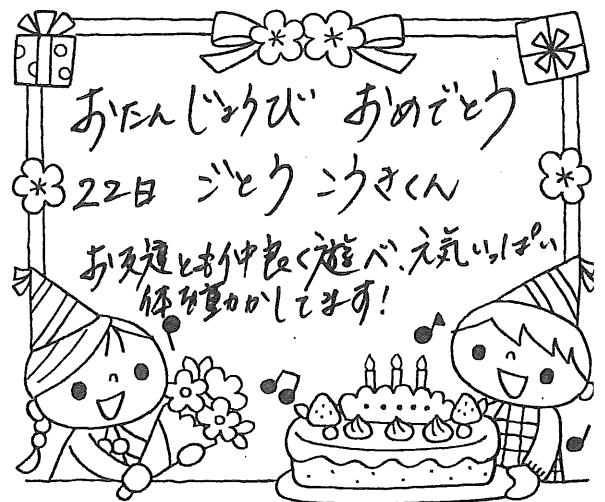 おたんじょうび おめでとう
22日 ごとう こうきくん
お友達とも仲良く遊べ、元気いっぱい
体を動かしてます!